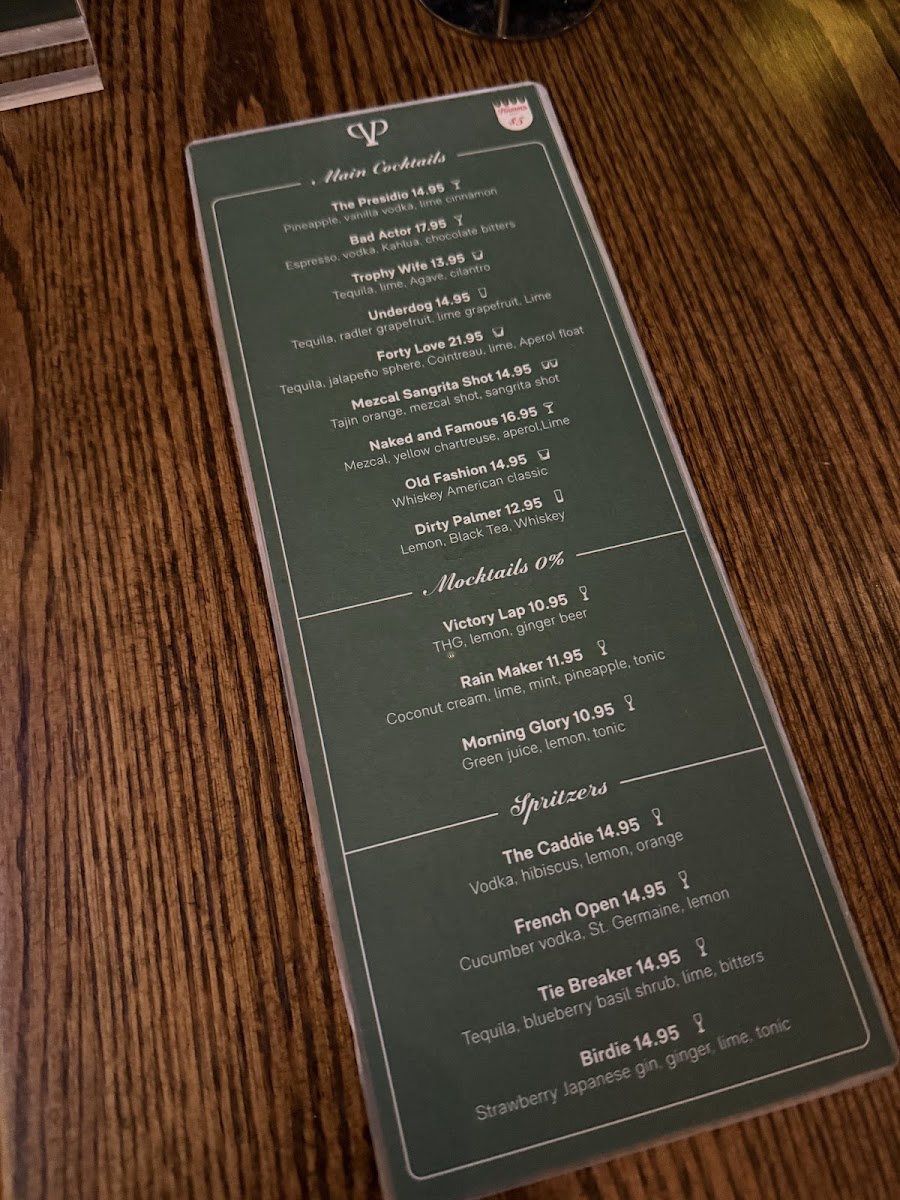 VP
85
Main Cocktails
The Presidio 14.95
Pineapple, vanilla vodka, lime cinnamon
Bad Actor 17.95
Espresso, vodka, Kahlua, chocolate bitters
Trophy Wife 13.95
Tequila, lime, Agave, cilantro
Underdog 14.95
Tequila, radler grapefruit, lime grapefruit, Lime
Forty Love 21.95
Tequila, jalapeño sphere, Cointreau, lime, Aperol float
Mezcal Sangrita Shot 14.95
Tajin orange, mezcal shot, sangrita shot
Naked and Famous 16.95
Mezcal, yellow chartreuse, aperol,Lime
Old Fashion 14.95
Whiskey American classic
Dirty Palmer 12.95
Lemon, Black Tea, Whiskey
Mocktails 0%
Victory Lap 10.95
THG, lemon, ginger beer
Rain Maker 11.95
Coconut cream, lime, mint, pineapple, tonic
Morning Glory 10.95
Green juice, lemon, tonic
Spritzers
The Caddie 14.95
Vodka, hibiscus, lemon, orange
French Open 14.95
Cucumber vodka, St. Germaine, lemon
Tie Breaker 14.95
Tequila, blueberry basil shrub, lime, bitters
Birdie 14.95
Strawberry Japanese gin, ginger, lime, tonic